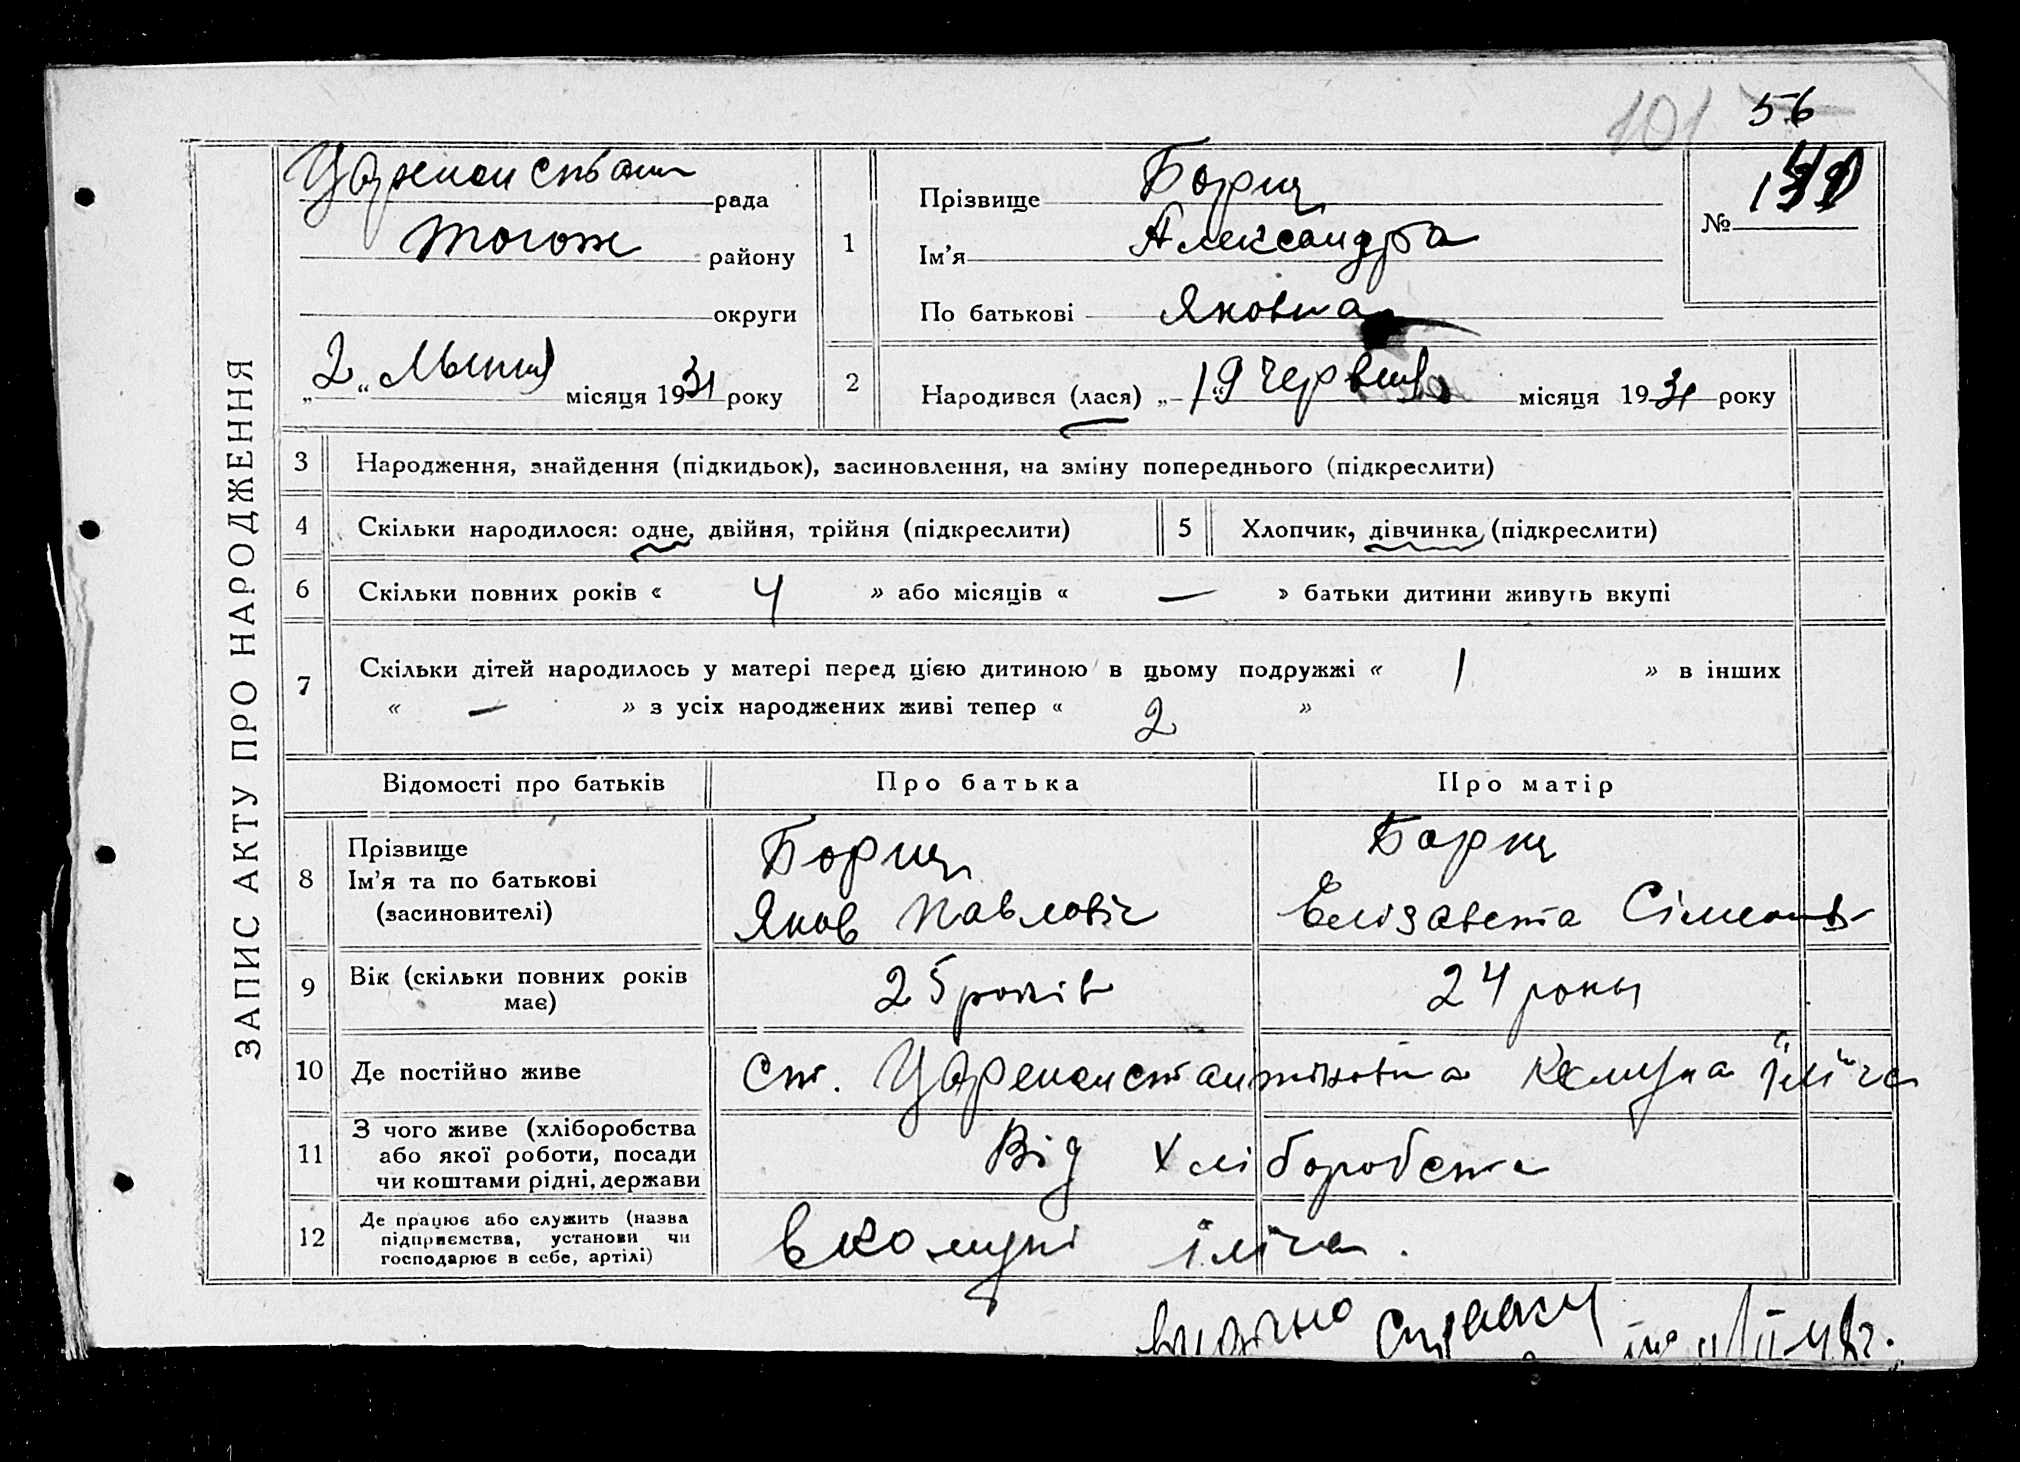 56
101
ЗАПИС АКТУ ПРО НАРОДЖЕННЯ
рада
району
округи
„ 2 “ Липня місяця 1931 року
1
Прізвище Борщ
Ім’я Александра
По батькові Яковна
№
2
Народився (лася) „ 19 “ червня місяця 1931 року
3 Народження, знайдення (підкидьок), засиновлення, на зміну попереднього (підкреслити)
4 Скільки народилося: одне, двійня, трійня (підкреслити) 5 Хлопчик, дівчинка (підкреслити)
6 Скільки повних років « 4 » або місяців « — » батьки дитини живуть вкупі
7 Скільки дітей народилось у матері перед цією дитиною в цьому подружжі « 1 » в інших
« — » з усіх народжених живі тепер « 2 »
Відомості про батьків Про батька Про матір
8 Прізвище
Ім’я та по батькові
(засиновителі)
Борщ
Яков Павловіч
Борщ
Елізавета
9 Вік (скільки повних років
має)
25 років
24 роки
10 Де постійно живе
ст. Цареконстантіновка Комуна Ілліча
11 З чого живе (хліборобства
або якої роботи, посади
чи коштами рідні, держави
Від Хліборобства
12 Де працює або служить (назва
підприємства, установи чи
господарює в себе, артілі)
в комуні Іліча.
справку